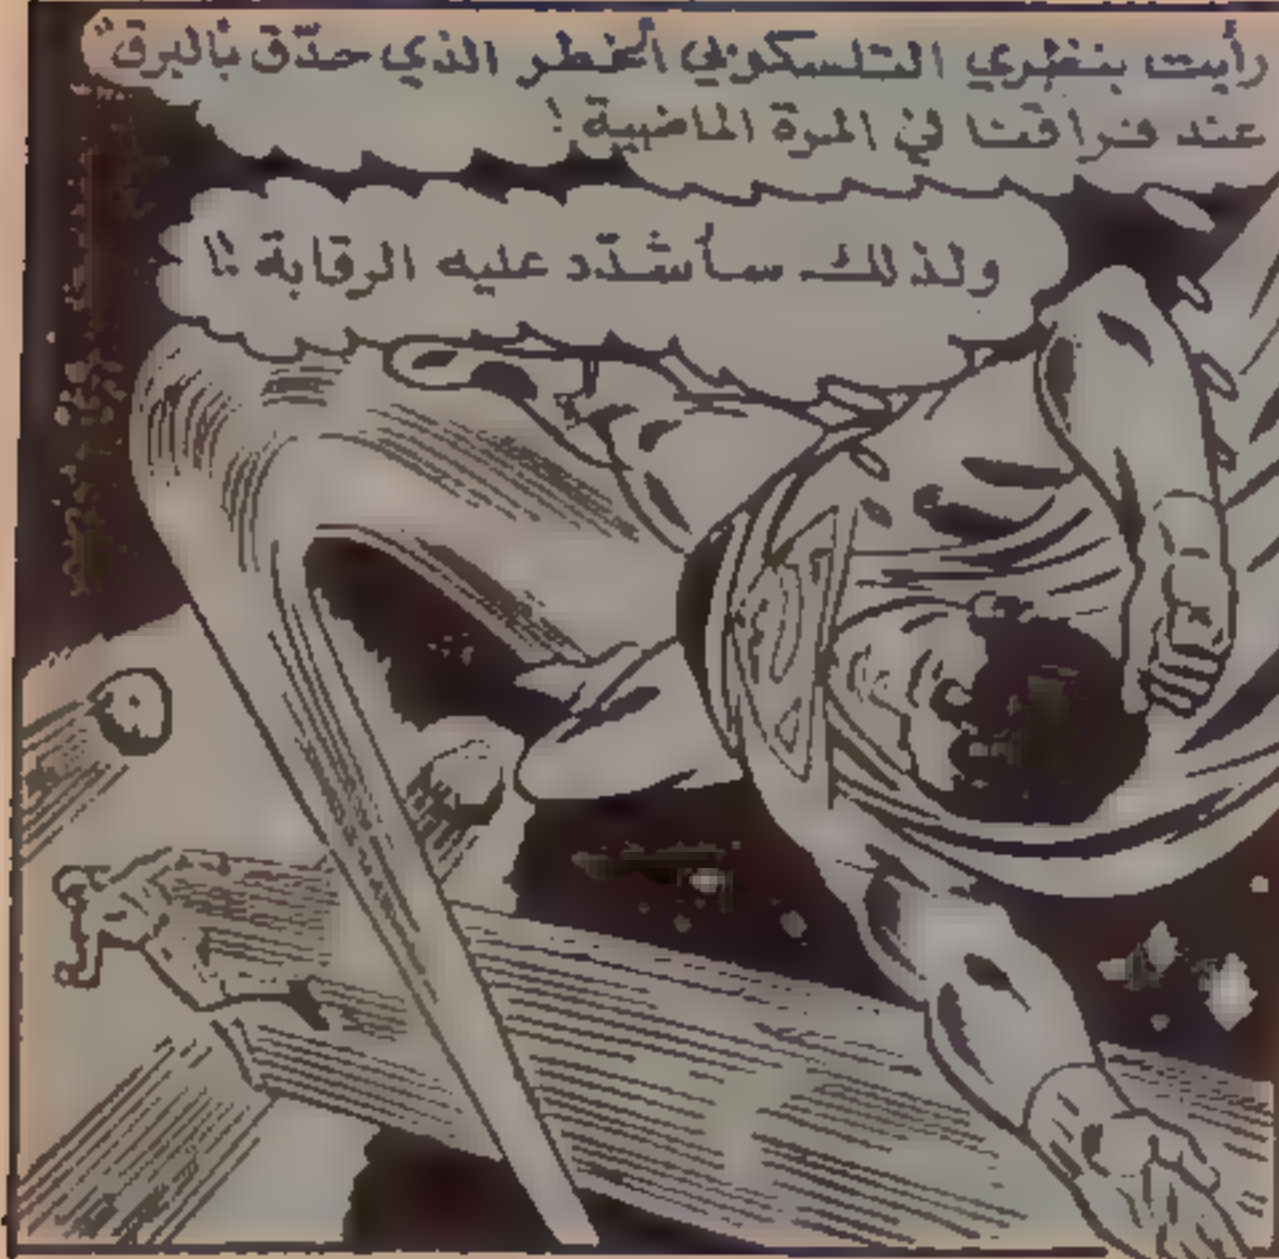 رأيت بنظري التلسكوبي الخطر الذي حدّق بالبرق"
عند فراقنا في المرة الماضية !
ولذلك سأشدّد عليه الرقابة !!